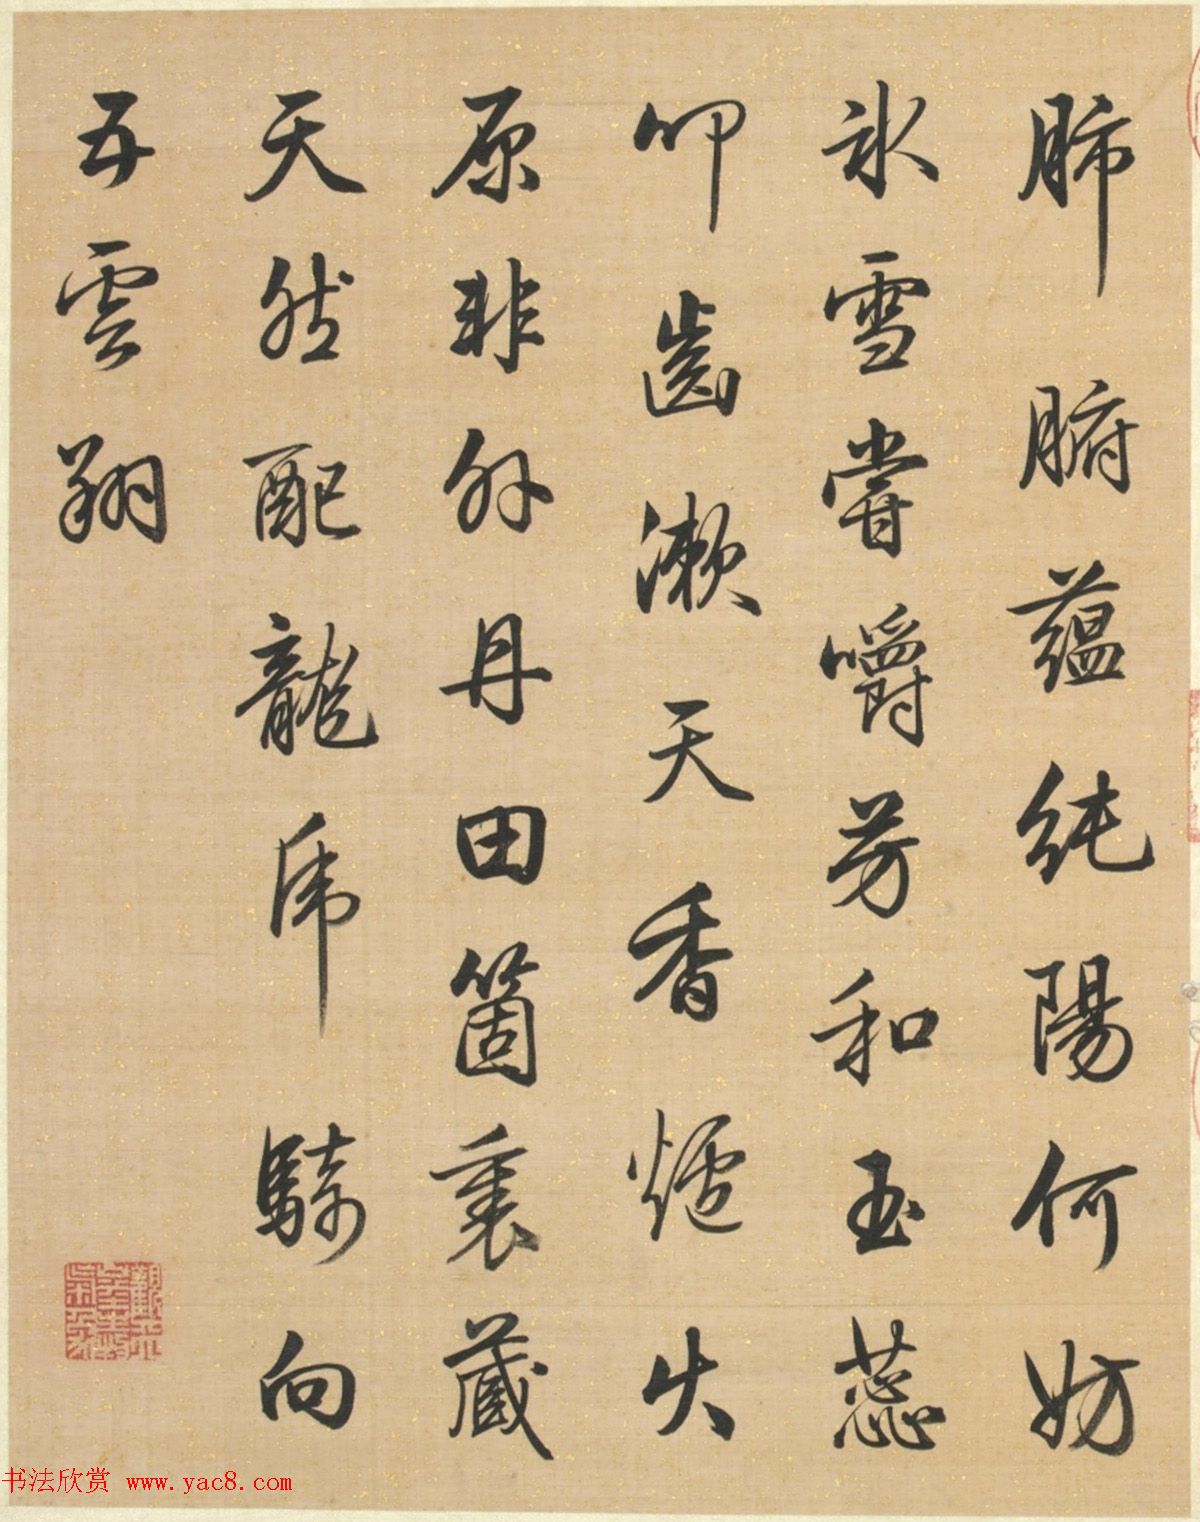 肺腑蘊純陽何妨
氷雪嘗嚼芳和玉蕊
叩齒漱天香爐火
原非外丹田箇裏蔵
天然配龍虎騎向
五雲翔
书法欣赏 www.yac8.com